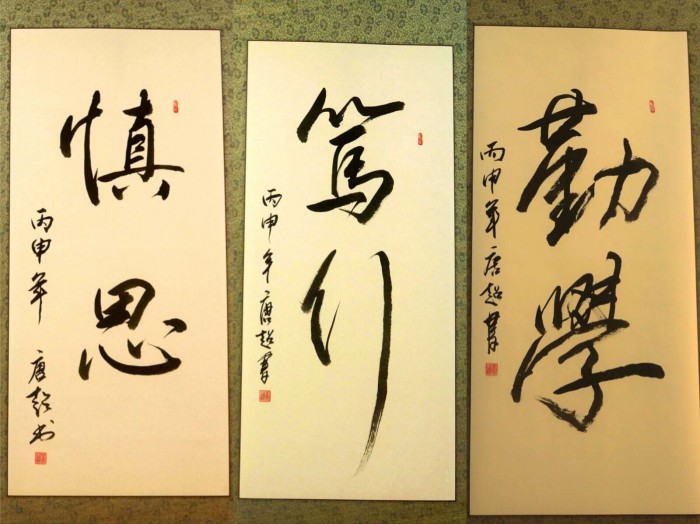 慎思
丙申年 唐超书
篤行
丙申年 唐超書
勤學
丙申年 唐超書